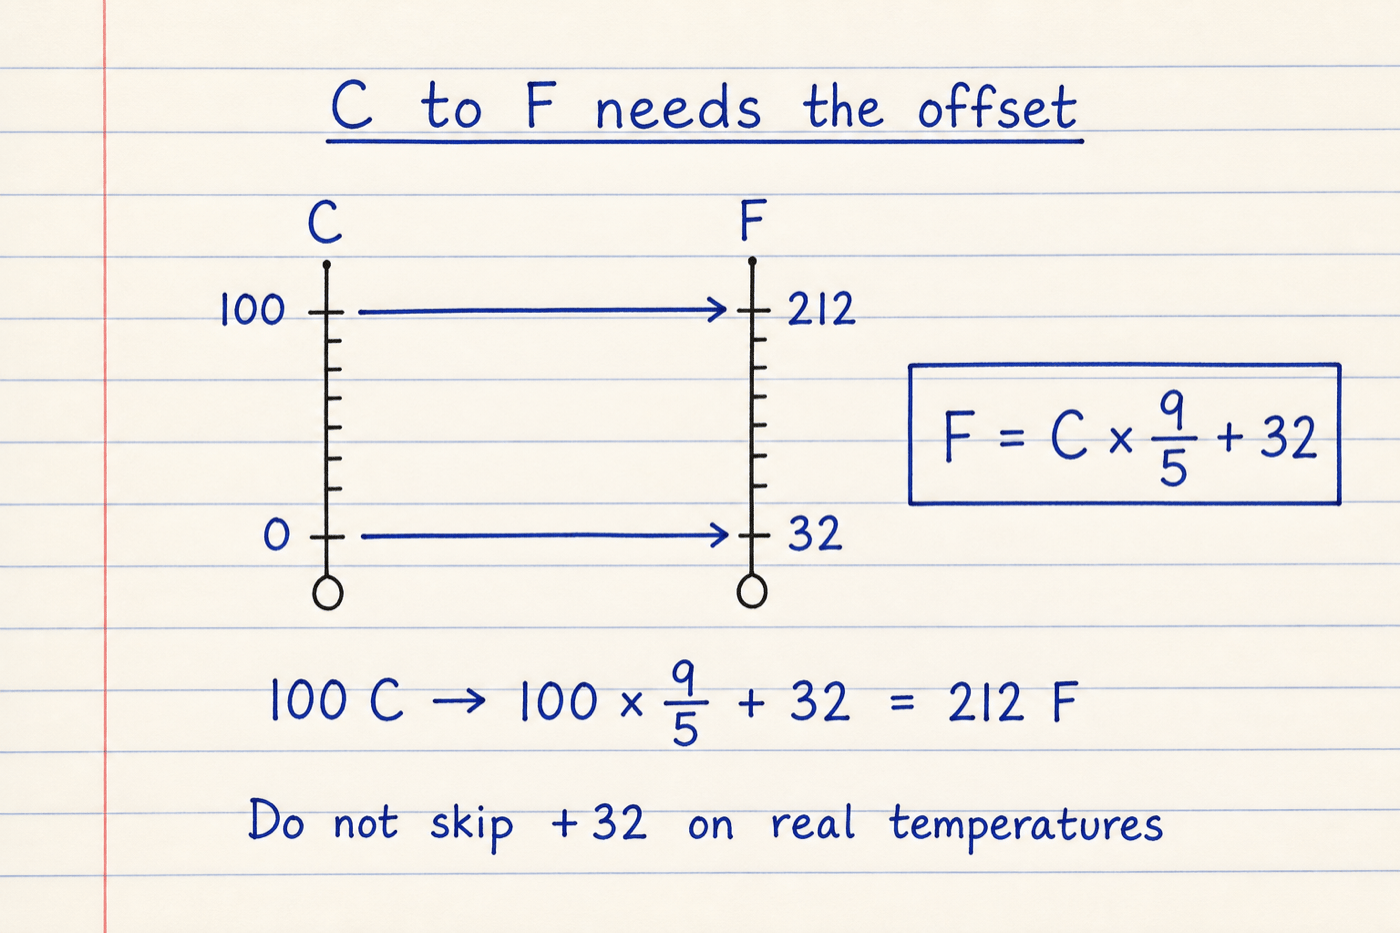 C to F needs the offset
C F
100 212
F = C × 9/5 + 32
0 32
100 C → 100 × 9/5 + 32 = 212 F
Do not skip +32 on real temperatures